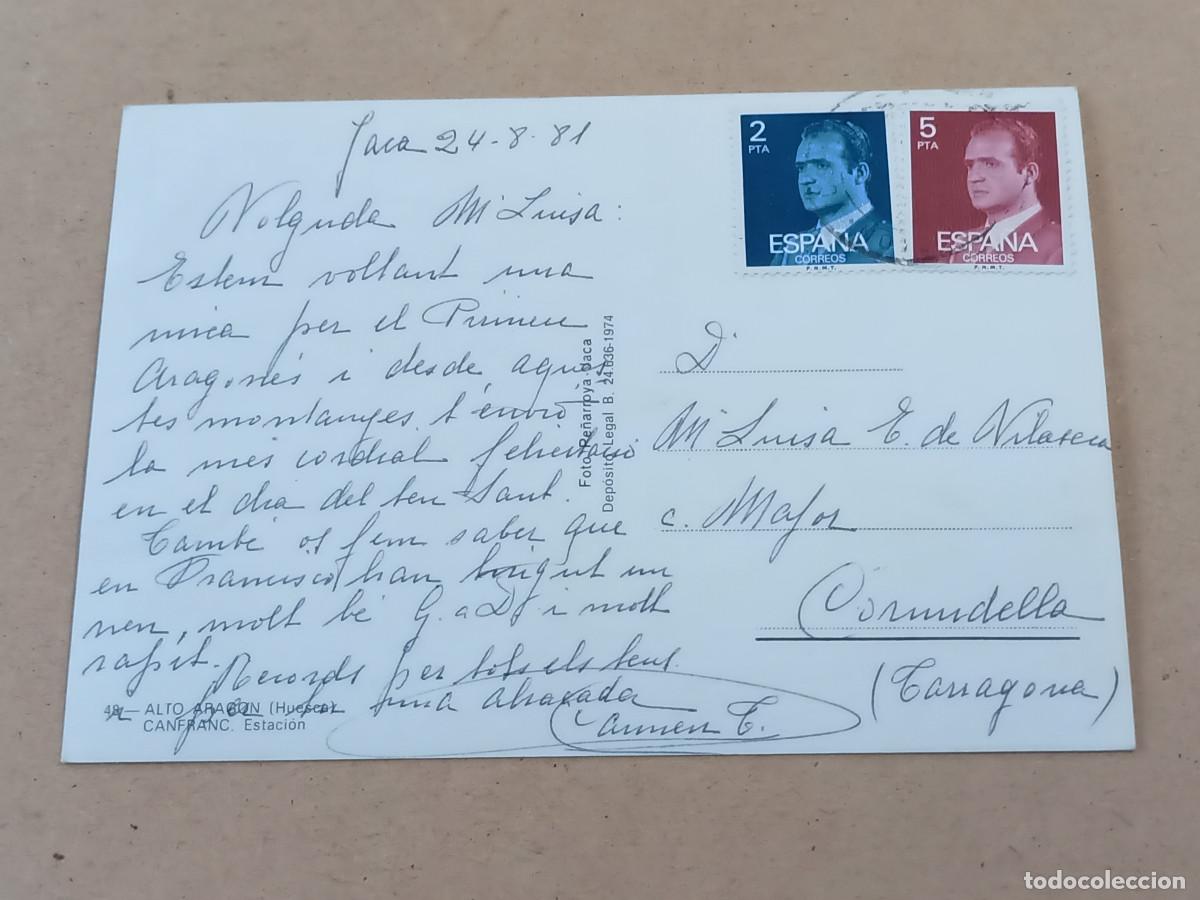 Jaca 24-8-81
Volguda Mª Luisa:
Estem voltant una
mica per el Pirineu
Aragonés i desde aques
tes montanyes t'envio
la més cordial felicitació
en el dia del teu Sant.
També os fem saber que
en Francisco han tingut un
nen, molt bé G. a D. i molt
rapit.
Records per tots els teus
una abraçada
Carmen T.
48.— ALTO ARAGON (Huesca)
CANFRANC. Estación
Foto Peñarroya Jaca
Depósito Legal B. 24.636-1974
2
PTA
ESPAÑA
CORREOS
F.N.M.T.
5
PTA
ESPAÑA
CORREOS
F.N.M.T.
Dª
Mª Luisa E. de Vilaseca
c. Major
Cornudella
(Tarragona)
todocoleccion